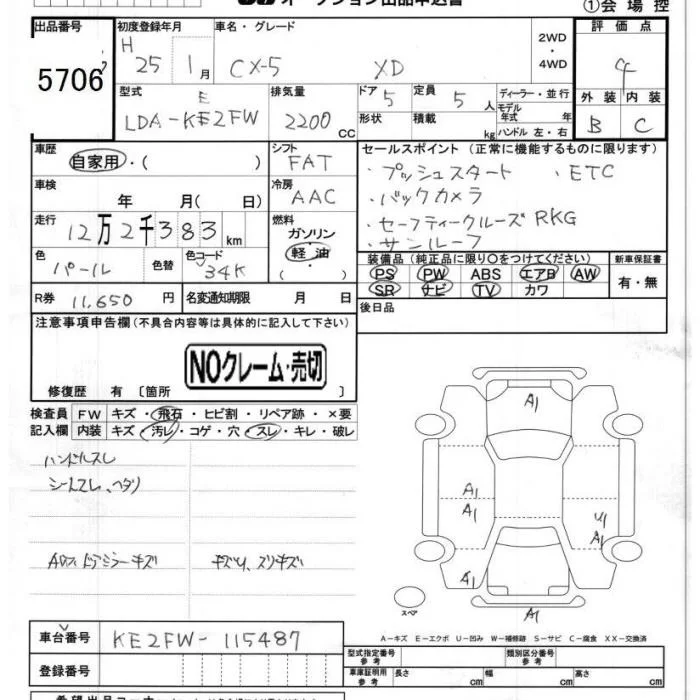 オークション出品申込書
①会場控
出品番号 初度登録年月 車名・グレード 2WD・4WD 評価点
5706 H 25年 1月 CX-5 XD 4
型式 排気量 ドア 5 定員 5人 ディーラー・並行 外装 内装
LDA-KE2FW 2200CC 形状 積載 kg モデル年式 年式 ハンドル 左・右 B C
車歴 自家用・( ) シフト FAT セールスポイント (正常に機能するものに限ります)
・プッシュスタート ・ETC
車検 年 月(日) 冷房 AAC ・バックカメラ
走行 12万2千383km 燃料 ガソリン・軽油・( ) ・セーフティークルーズ PKG
・サンルーフ
色 パール 色替 色コード 34K 装備品 (純正品に限り○をつけてください) 新車保証書
PS PW ABS エアB AW 有・無
SR ナビ TV カワ
R券 11,650円 名変通知期限 月 日 後日品
注意事項申告欄(不具合内容等は具体的に記入して下さい)
NOクレーム・売切
修復歴 有 〔箇所 〕
検査員 FW キズ・飛石・ヒビ割・リペア跡・×要
記入欄 内装 キズ・汚レ・コゲ・穴・スレ・キレ・破レ
ハンドルスレ
シートスレ、ヘタリ
ドアミラーキズ キズU、スリキズ
A1
A1
A1
U1
A1
A1
A1
スペア
A-キズ E-エクボ U-凹み W-補修跡 S-サビ C-腐食 XX-交換済
車台番号 KE2FW-115487
登録番号
型式指定番号 参考 類別区分番号 参考
車庫証明用 参考 長さ cm 幅 cm 高さ cm